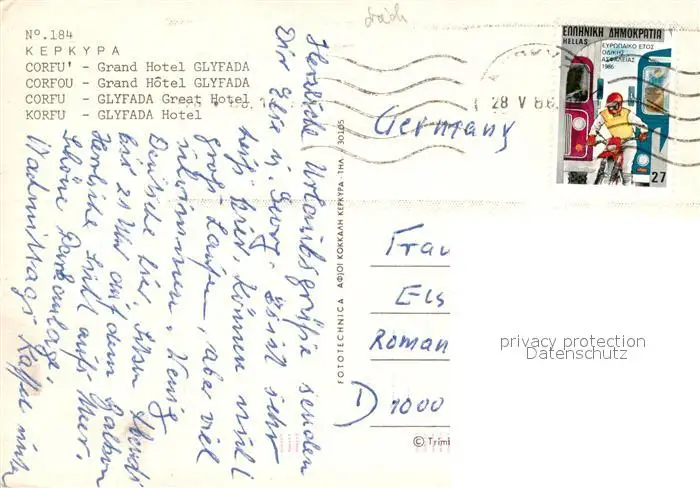 Nº. 184
ΚΕΡΚΥΡΑ
CORFU' - Grand Hotel GLYFADA
CORFOU - Grand Hôtel GLYFADA
CORFU - GLYFADA Great Hotel
KORFU - GLYFADA Hotel
Herzliche Urlaubsgrüße senden
Dir Else u. Georg. Sehr
heiß hier, können nicht
groß laufen, aber viel
schwimmen. Wenig
Deutsche hier. Sitzen Abends
bis 21 Uhr auf dem Balkon
Herrliche aufs Meer.
Schöne Parkanlage,
Nachmittags Kaffee
FOTOTECHNICA ΑΦΙΟΙ ΚΟΚΚΑΛΗ ΚΕΡΚΥΡΑ - ΤΗΛ. 30105
ΕΛΛΗΝΙΚΗ ΔΗΜΟΚΡΑΤΙΑ
HELLAS
ΕΥΡΩΠΑΪΚΟ ΕΤΟΣ
ΟΔΙΚΗΣ
ΑΣΦΑΛΕΙΑΣ
1986
27
28 V 86
Germany
Frau
Els
Roman
D 1000
privacy protection
Datenschutz